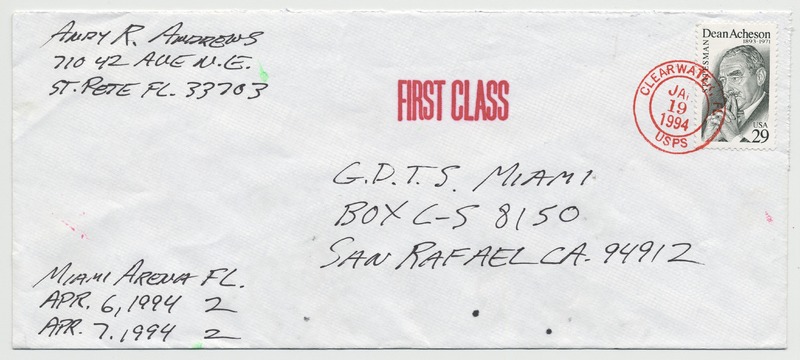 ANDY R. ANDREWS
710 42 AVE N.E.
ST. PETE FL. 33703
FIRST CLASS
CLEARWATER, FL
JAN
19
1994
USPS
Dean Acheson
1893-1971
STATESMAN
USA
29
G.D.T.S. MIAMI
BOX C-S 8150
SAN RAFAEL CA. 94912
MIAMI ARENA FL.
APR. 6, 1994 2
APR. 7. 1994 2